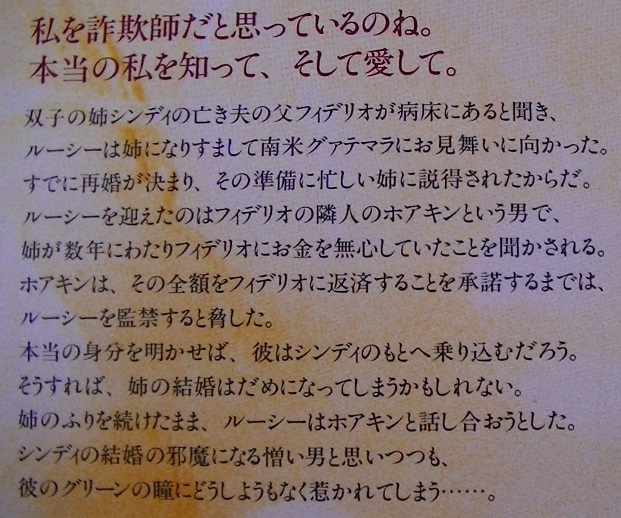 私を詐欺師だと思っているのね。
本当の私を知って、そして愛して。
双子の姉シンディの亡き夫の父フィデリオが病床にあると聞き、
ルーシーは姉になりすまして南米グァテマラにお見舞いに向かった。
すでに再婚が決まり、その準備に忙しい姉に説得されたからだ。
ルーシーを迎えたのはフィデリオの隣人のホアキンという男で、
姉が数年にわたりフィデリオにお金を無心していたことを聞かされる。
ホアキンは、その全額をフィデリオに返済することを承諾するまでは、
ルーシーを監禁すると脅した。
本当の身分を明かせば、彼はシンディのもとへ乗り込むだろう。
そうすれば、姉の結婚はだめになってしまうかもしれない。
姉のふりを続けたまま、ルーシーはホアキンと話し合おうとした。
シンディの結婚の邪魔になる憎い男と思いつつも、
彼のグリーンの瞳にどうしようもなく惹かれてしまう……。